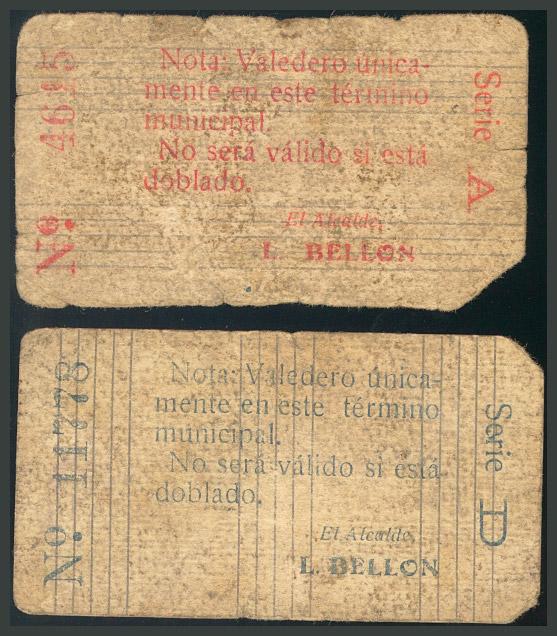 Nº. 4615
Nota: Valedero única-
mente en este término
municipal.
No será válido si está
doblado.
El Alcalde,
L. BELLON
Serie A
Nº. 11778
Nota: Valedero única-
mente en este término
municipal.
No será válido si está
doblado.
El Alcalde,
L. BELLON
Serie D